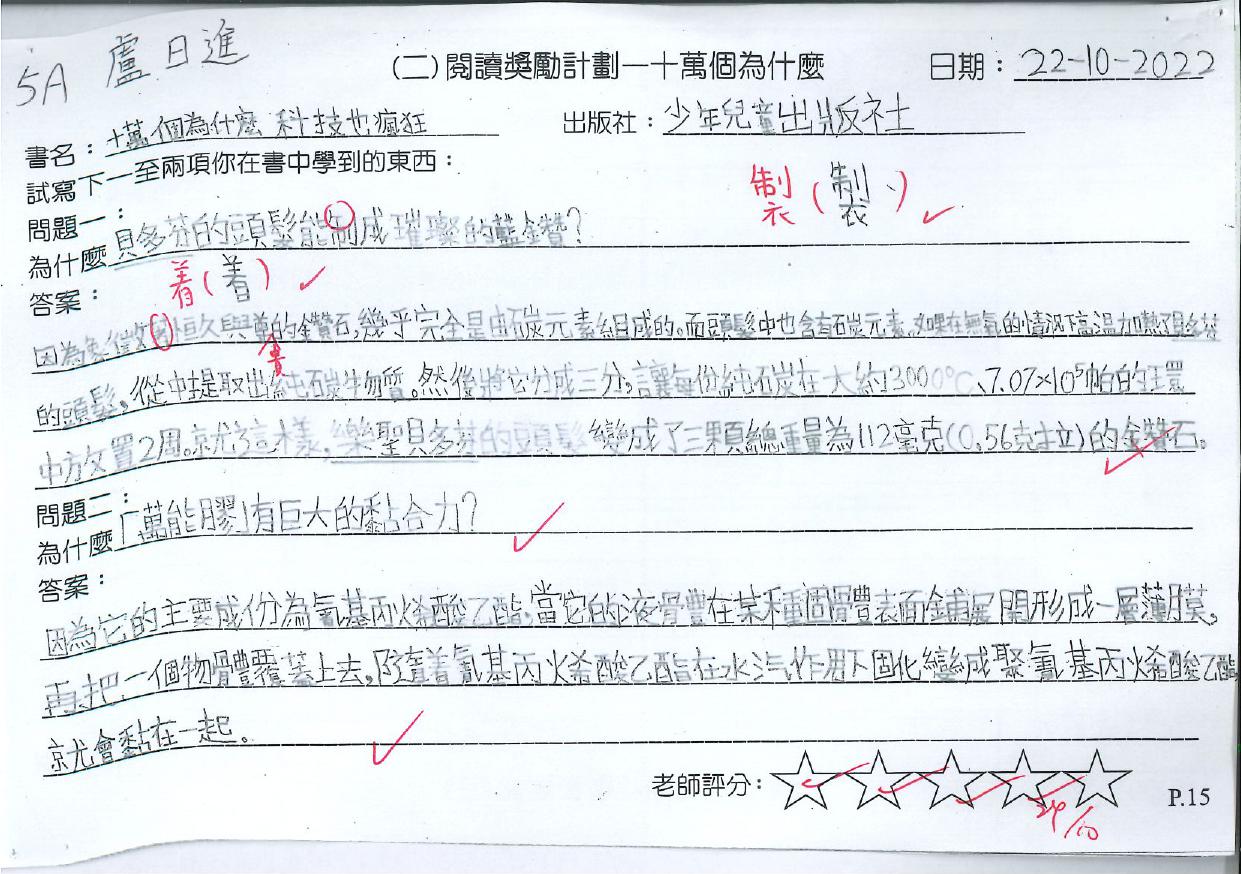 5A 盧日進
(二)閱讀獎勵計劃—十萬個為什麼 日期：22-10-2022
書名：十萬個為什麼 科技也瘋狂 出版社：少年兒童出版社
試寫下一至兩項你在書中學到的東西：
製(製、)
問題一：
為什麼貝多芬的頭髮能制成璀璨的藍鑽?
着(着)
答案：
因為象徵着恒久與貴的鑽石,幾乎完全是由碳元素組成的。而頭髮中也含有碳元素,如果在無氧的情況下高溫加熱貝多芬
的頭髮,從中提取出純碳物質。然後將它分成三分,讓每份純石炭在大約3000°C、7.07×10⁵帕的環
中放置2周。就這樣,樂聖貝多芬的頭髮變成了三顆總重量為112毫克(0.56克拉)的鑽石。
問題二：
為什麼「萬能膠」有巨大的黏合力?
答案：
因為它的主要成份為氰基丙烯酸乙酯,當它的液體在某種固體表面鋪展開形成一層薄膜,
再把一個物體覆蓋上去,隨着氰基丙烯酸乙酯在水汽作用下固化變成聚氰基丙烯酸乙酯
就會黏在一起。
老師評分：
24/10
P.15